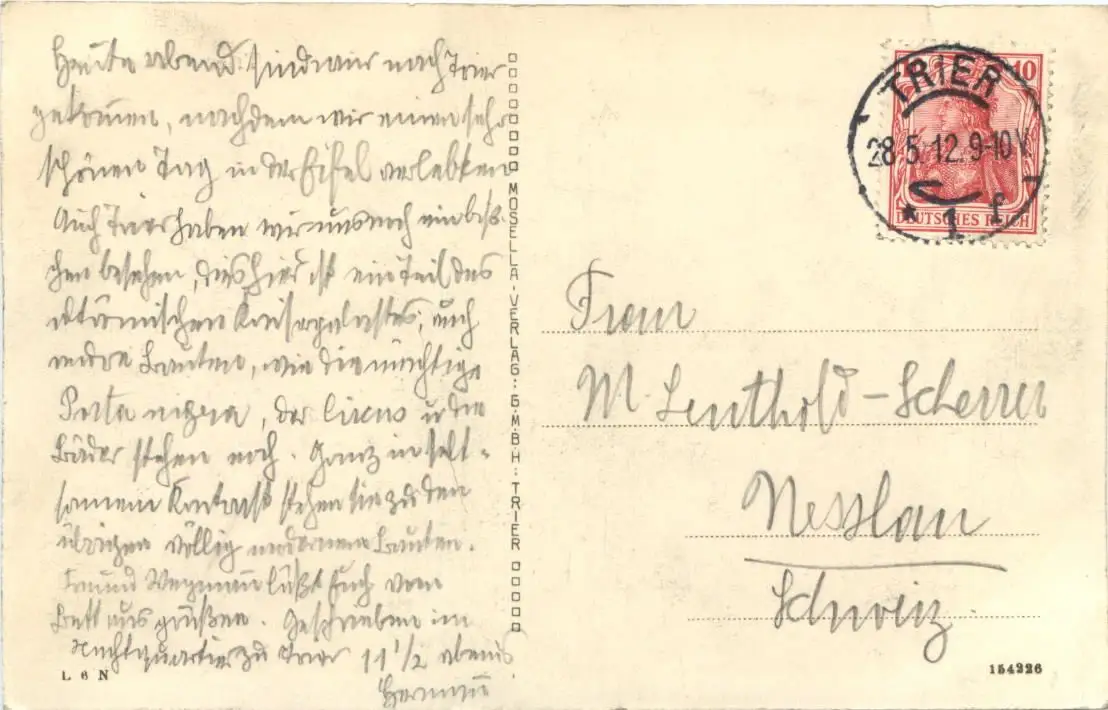 Heute abend sind wir nach Trier
gekom̄en, nachdem wir einen sehr
schönen Tag in der Eifel verlebten
Auch Trier haben wir uns noch ein bess
chen besehen, dies hier ist ein Teil des
römischen Kaiserpalastes, auch
andre Bauten, wie die mächtige
Porta nigra, der Circus u die
Bäder stehen noch. Ganz in selt-
samem Kontrast stehen sie zu den
übrigen völlig modernen Bauten.
Freund Wegmann läßt Euch vom
Bett aus grüßen. Geschrieben im
Nachtquartier zu Trier 11 1/2 abends
Hermann
MOSELLA-VERLAG: G.M.B.H: TRIER
L 6 N
10
DEUTSCHES REICH
TRIER
28 5. 12. 9-10 V
* 1 f
Frau
M. Leuthold-Scherrer
Nesslau
Schweiz.
154226